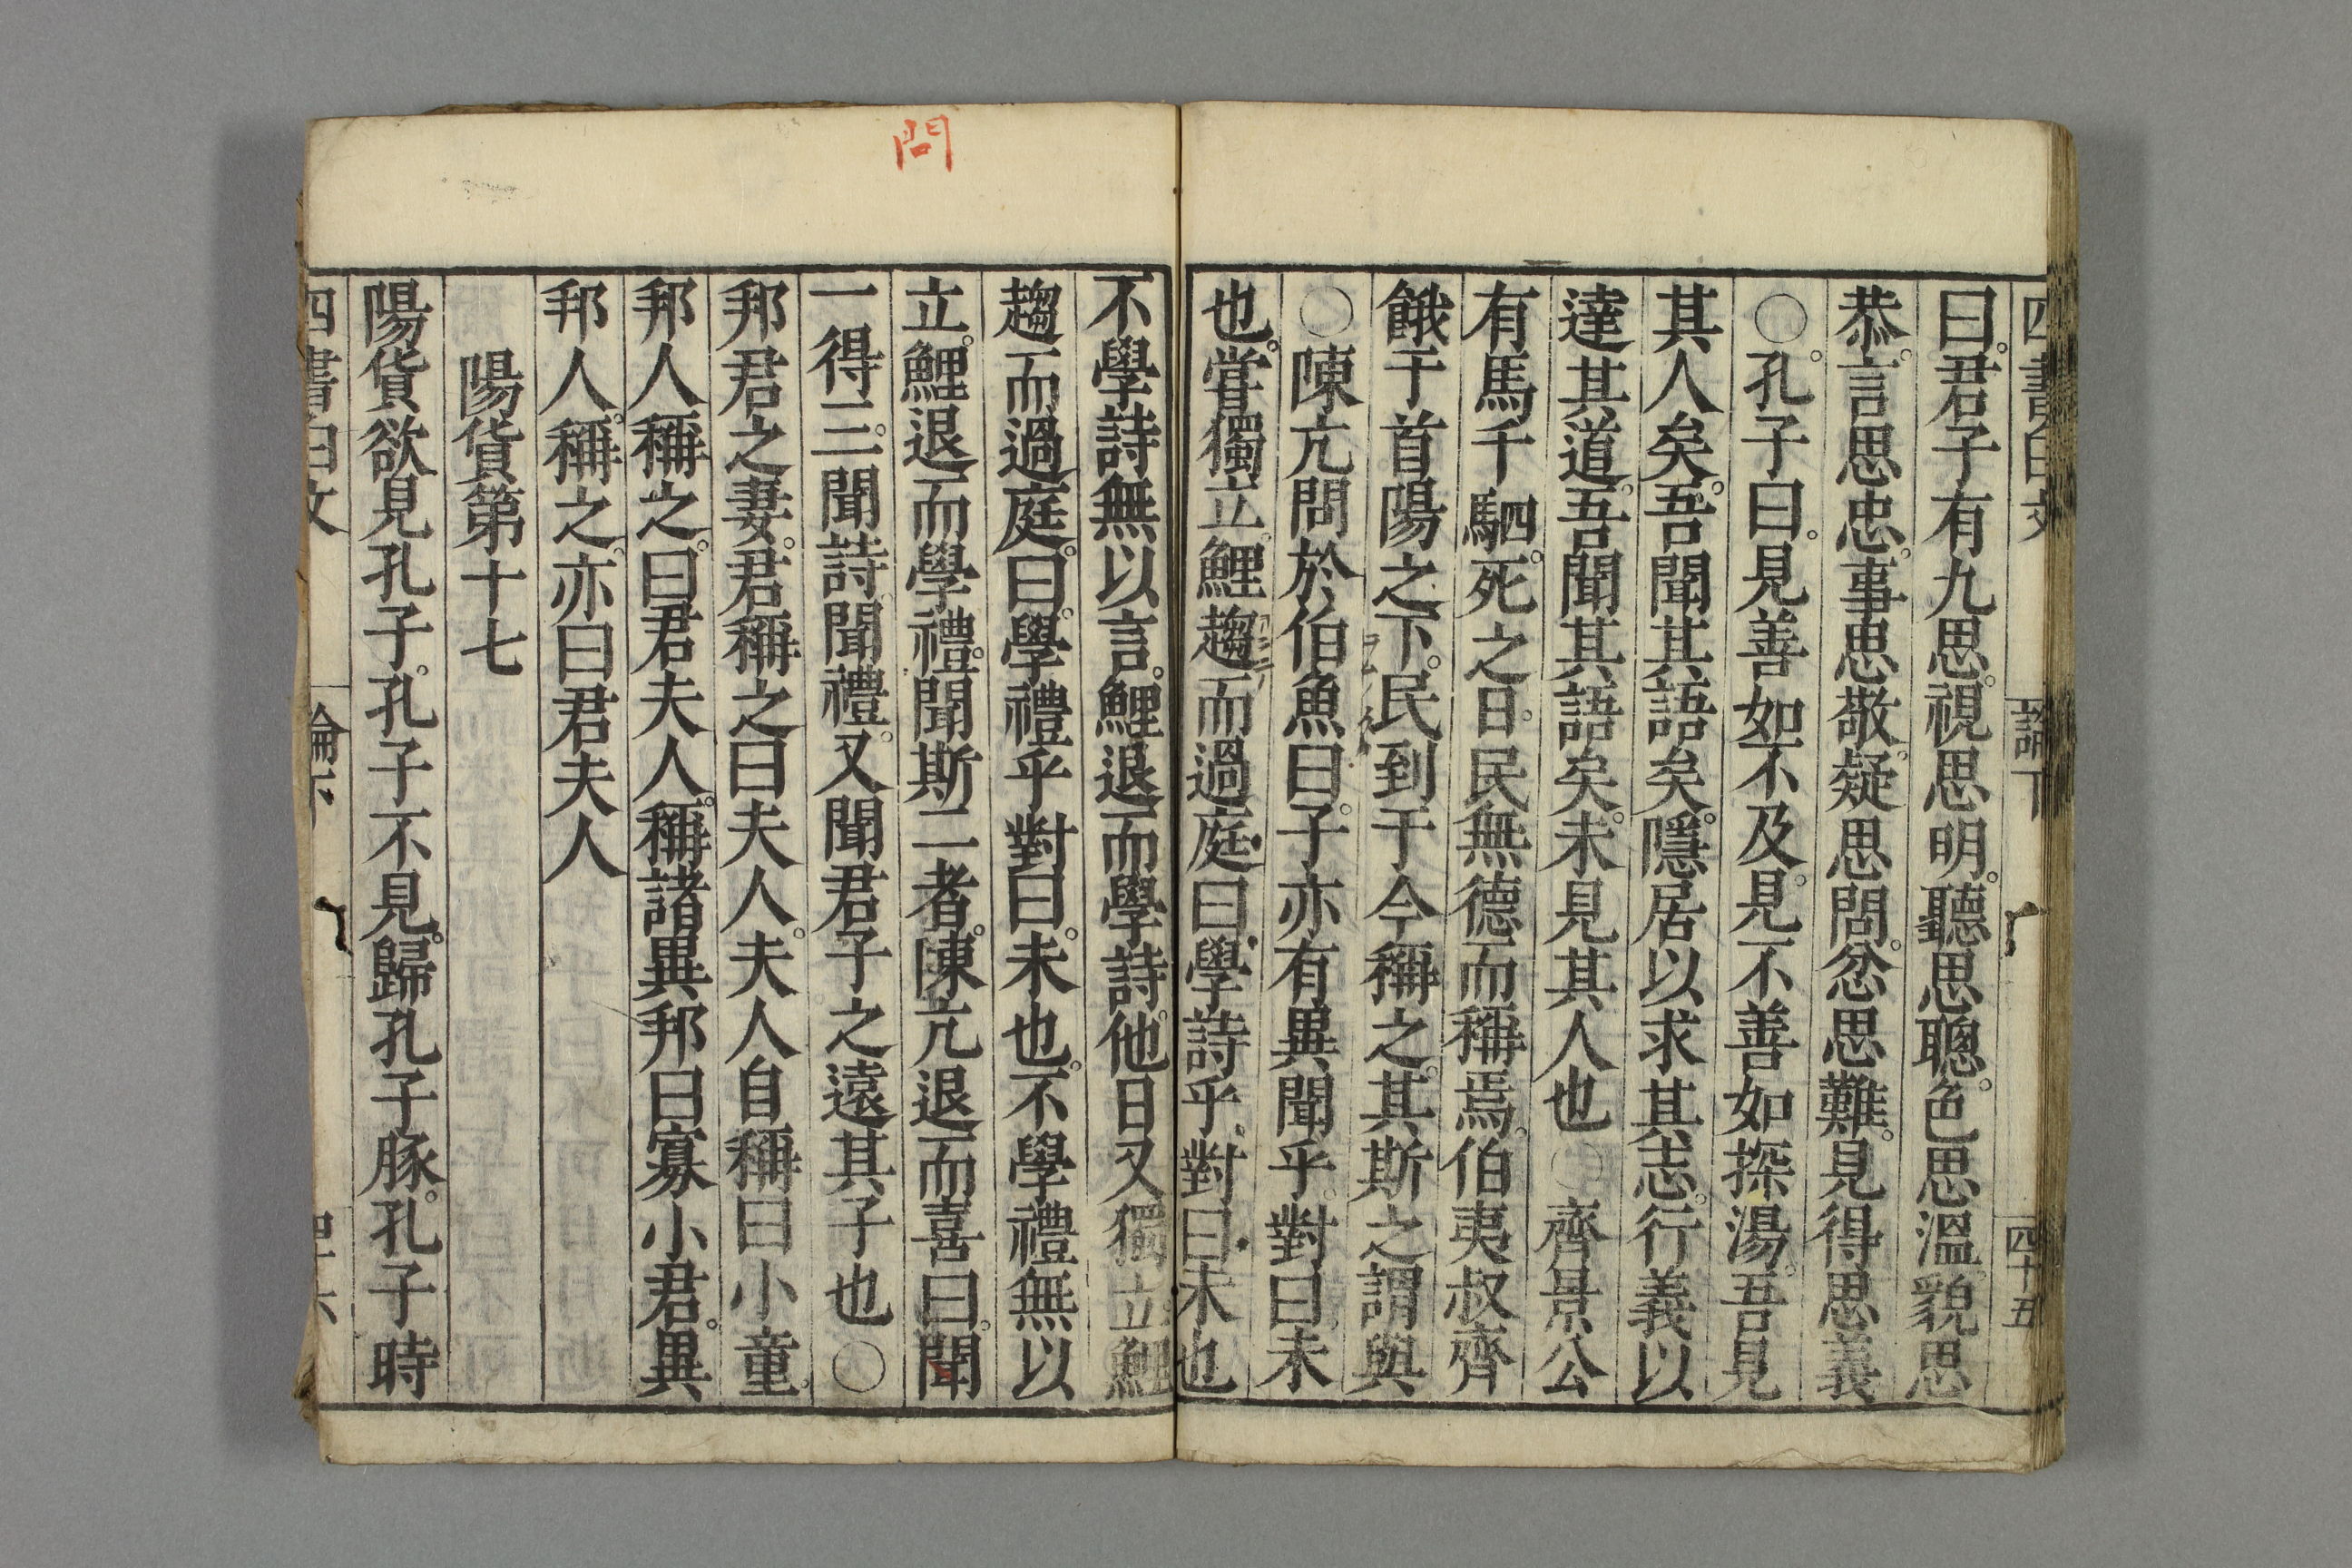 四書白文 論下 四十五
曰。君子有九思。視思明。聽思聰。色思溫。貌思
恭。言思忠。事思敬。疑思問。忿思難。見得思義
○孔子曰。見善如不及。見不善如探湯。吾見
其人矣。吾聞其語矣。隱居以求其志。行義以
達其道。吾聞其語矣。未見其人也○齊景公
有馬千駟。死之日。民無德而稱焉。伯夷叔齊
餓于首陽之下。民到于今稱之。其斯之謂與
○陳亢問於伯魚曰。子亦有異聞乎。對曰未
也。嘗獨立。鯉趨而過庭。曰。學詩乎。對曰。未也
問
不學詩無以言。鯉退而學詩。他日又獨立鯉
趨而過庭。曰。學禮乎對曰。未也。不學禮無以
立。鯉退而學禮。聞斯二者。陳亢退而喜曰。聞
一得三。聞詩。聞禮。又聞君子之遠其子也○
邦君之妻。君稱之曰夫人。夫人自稱曰小童。
邦人稱之。曰君夫人。稱諸異邦曰寡小君。異
邦人。稱之。亦曰君夫人
陽貨第十七
陽貨欲見孔子。孔子不見。歸孔子豚。孔子時
四書白文 論下 四十六